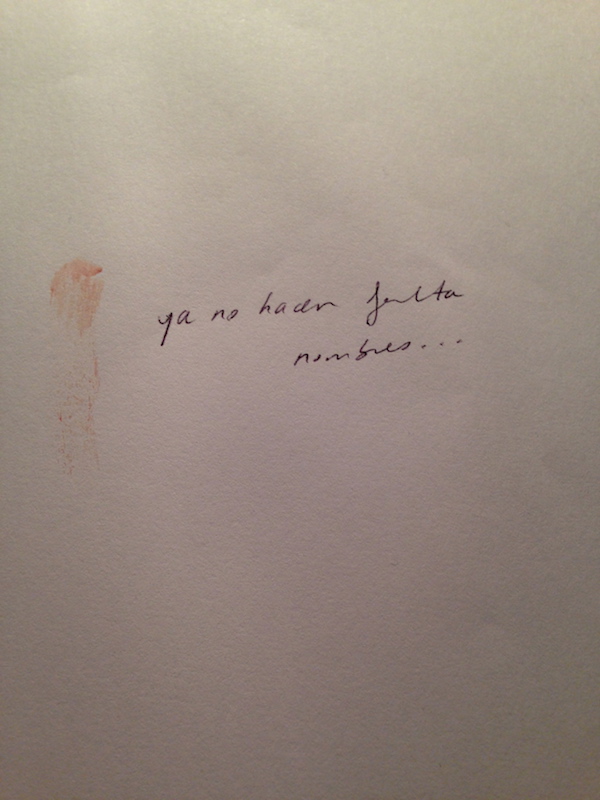 ya no hacen falta
nombres...